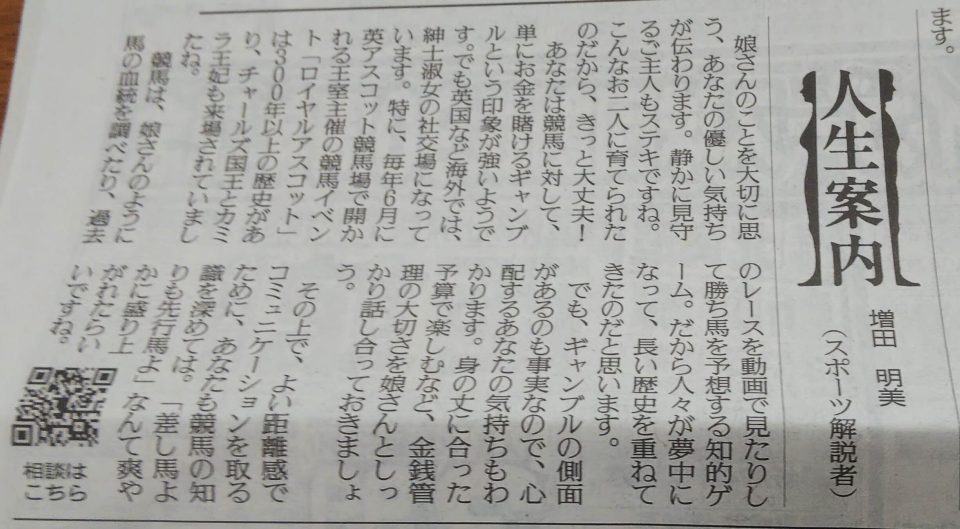 ます。
人生案内
増田 明美
(スポーツ解説者)
娘さんのことを大切に思
う、あなたの優しい気持ち
が伝わります。静かに見守
るご主人もステキですね。
こんなお二人に育てられた
のだから、きっと大丈夫!
あなたは競馬に対して、
単にお金を賭けるギャンブ
ルという印象が強いようで
す。でも英国など海外では、
紳士淑女の社交場になって
います。特に、毎年6月に
英アスコット競馬場で開か
れる王室主催の競馬イベン
ト「ロイヤルアスコット」
は300年以上の歴史があ
り、チャールズ国王とカミ
ラ王妃も来場されていまし
たね。
競馬は、娘さんのように
馬の血統を調べたり、過去
のレースを動画で見たりし
て勝ち馬を予想する知的ゲ
ーム。だから人々が夢中に
なって、長い歴史を重ねて
きたのだと思います。
でも、ギャンブルの側面
があるのも事実なので、心
配するあなたの気持ちもわ
かります。身の丈に合った
予算で楽しむなど、金銭管
理の大切さを娘さんとしっ
かり話し合っておきましょ
う。
その上で、よい距離感で
コミュニケーションを取る
ために、あなたも競馬の知
識を深めては。「差し馬よ
りも先行馬よ」なんて爽や
かに盛り上
がれたらい
いですね。
相談は
こちら